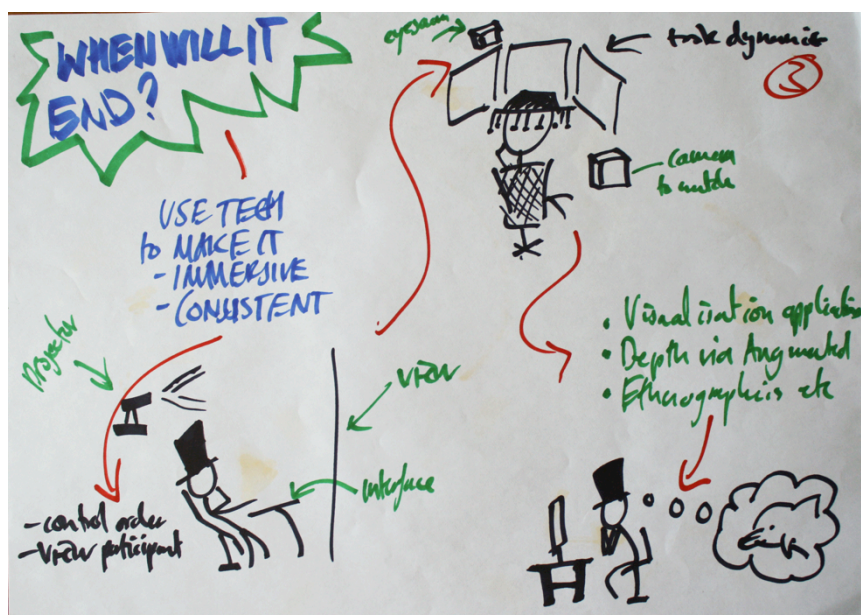 WHEN WILL IT
END?
USE TECH
to MAKE IT
- IMMERSIVE
- CONSISTENT
Projector
- control order
- view participant
view
interface
dynamics
3
camera
to watch
• Visualisation application
• Depth via Augmented
• Ethnographics etc